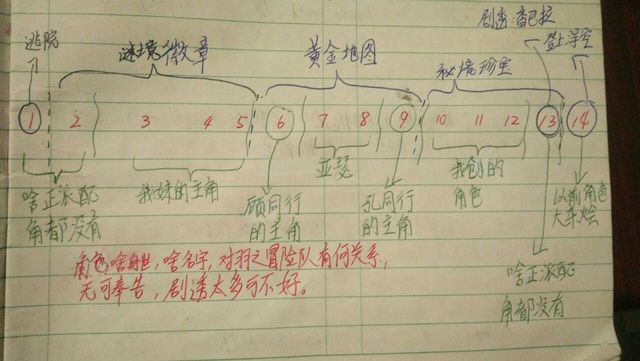 剧透:香巴拉
逃院
谜境徽章
黄金地图
秘境珍宝
登上浮空
1 2 3 4 5 6 7 8 9 10 11 12 13 14
啥正派配
角都没有
我妹的主角
顾同行
的主角
亚瑟
孔同行
的主角
我创的
角色
以前角色
大车烩
啥正派配
角都没有
角色啥身世,啥名字,对羽之冒险队有何关系,
无可奉告,剧透太多可不好。